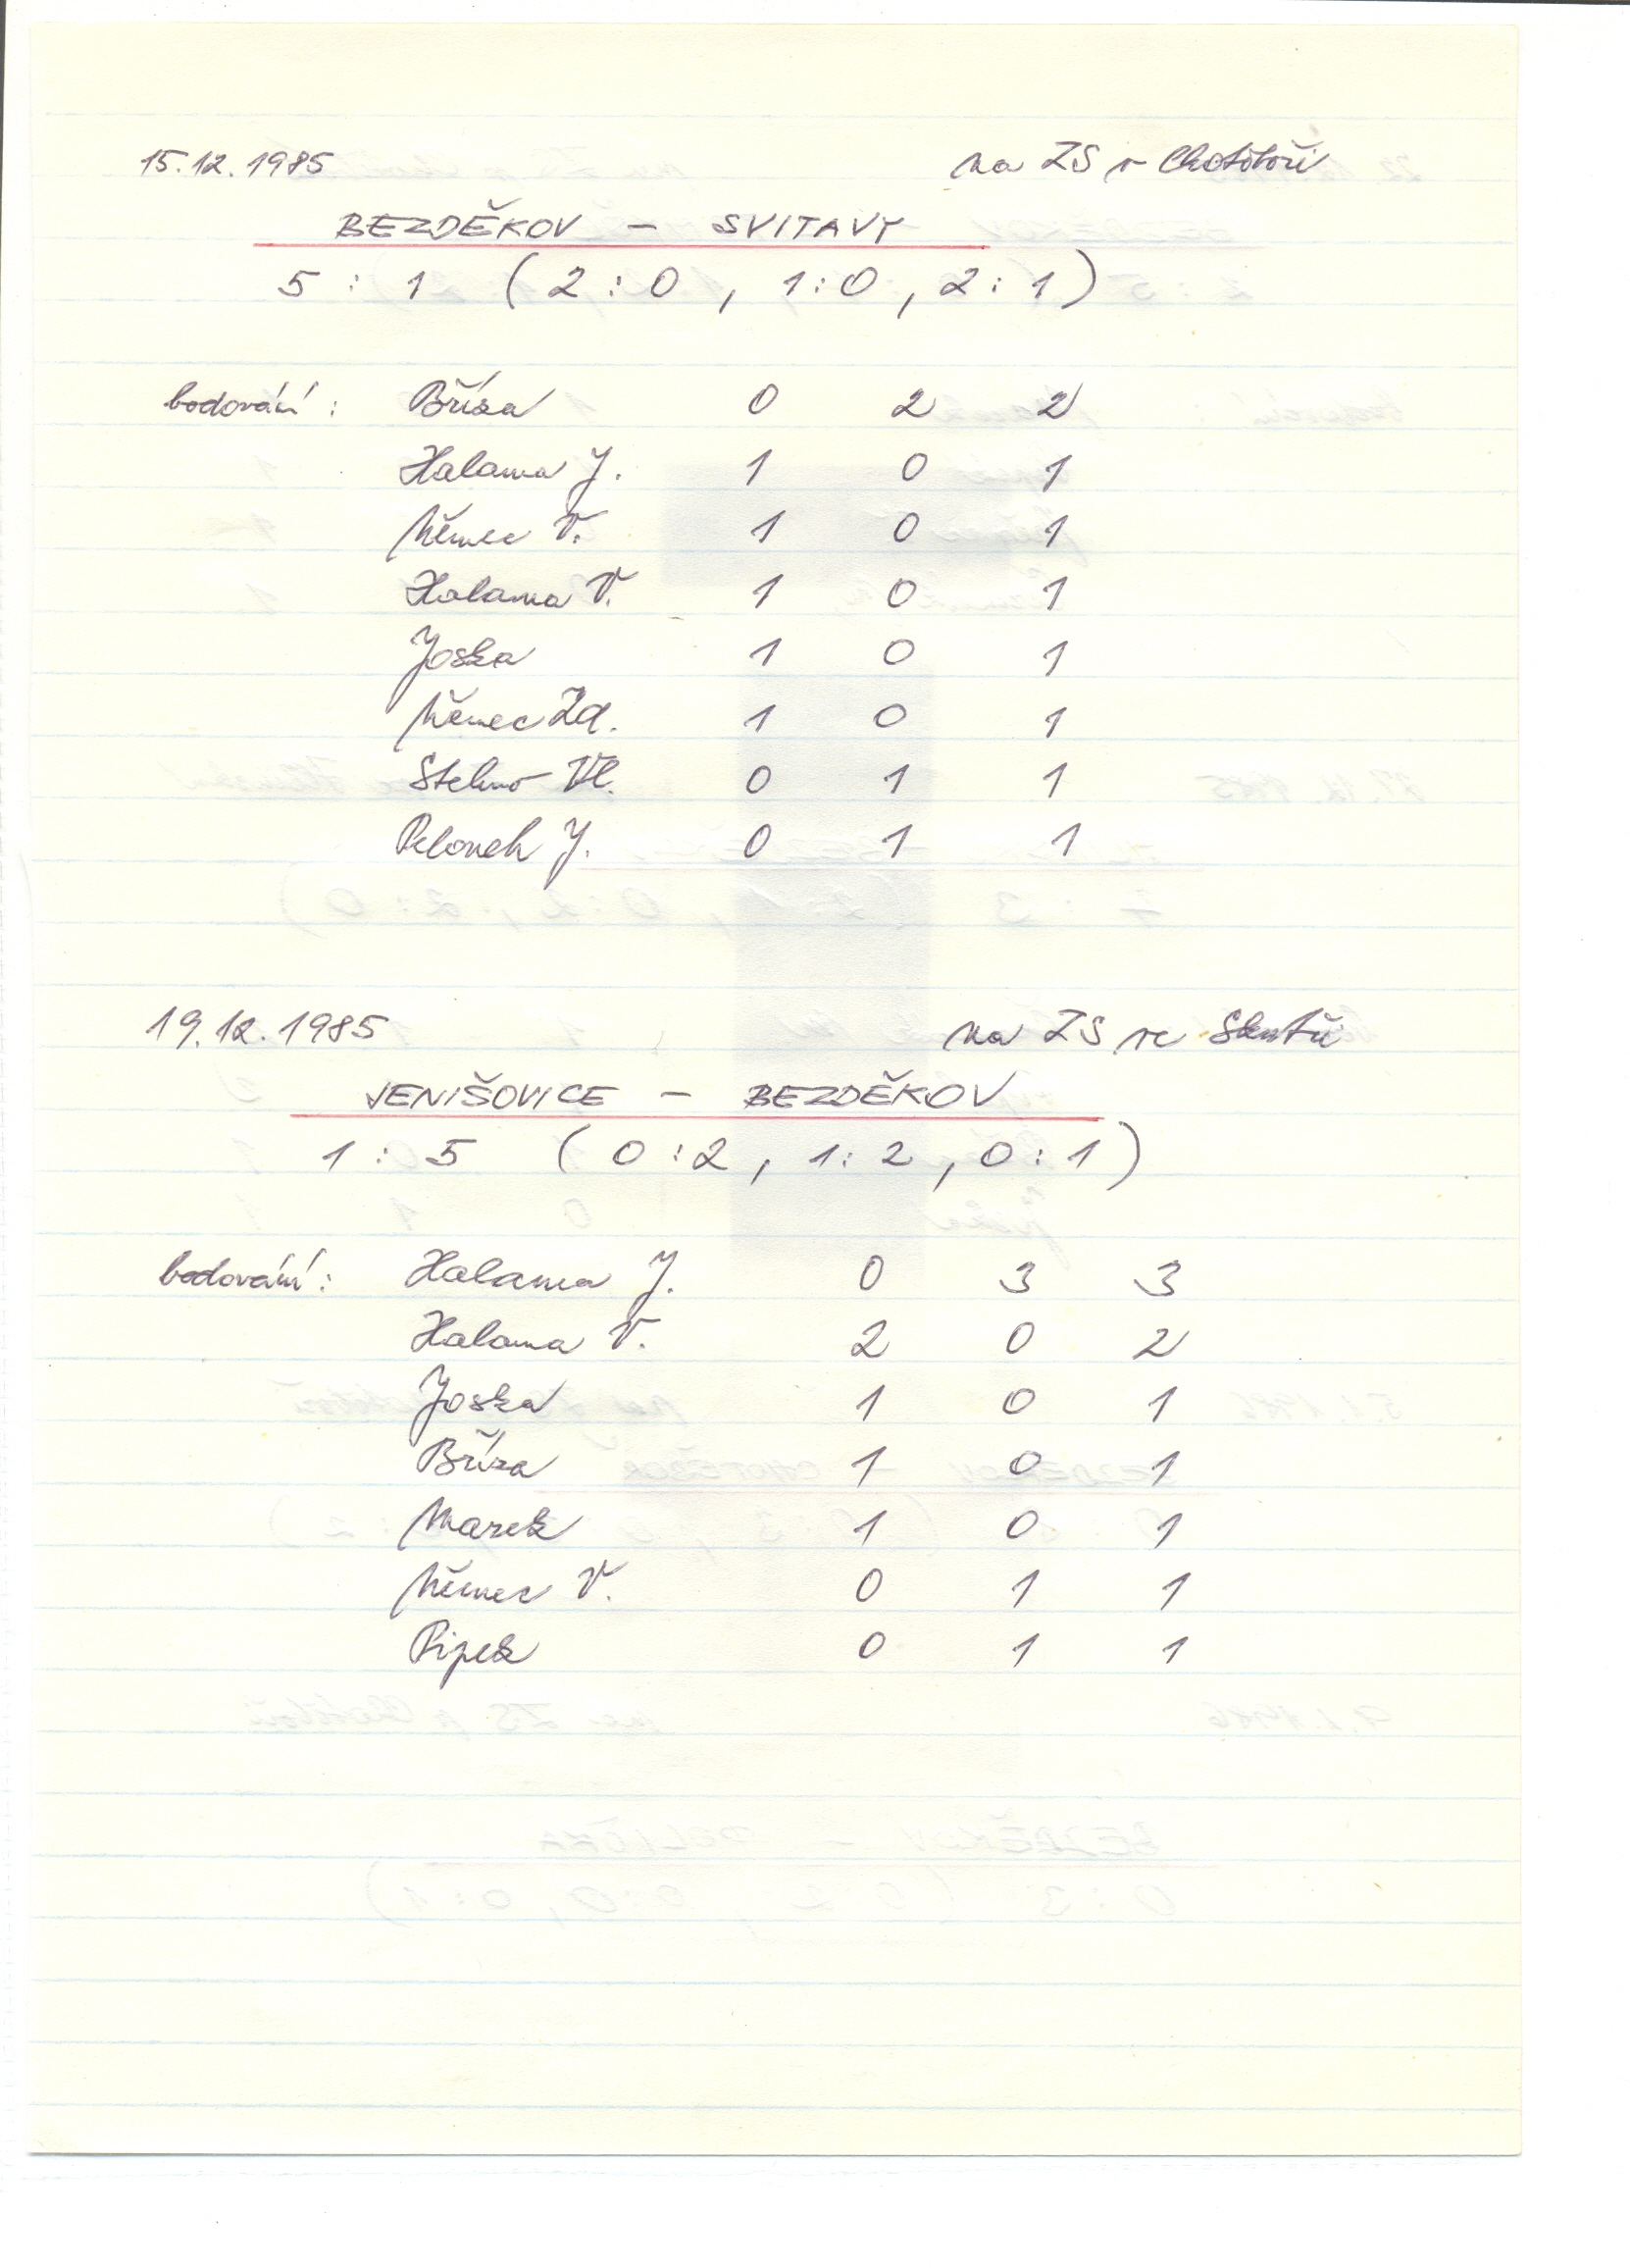 15.12.1985 na ZS v Chotěboři
BEZDĚKOV - SVITAVY
5 : 1 ( 2 : 0 , 1 : 0 , 2 : 1 )
bodování : Bříza 0 2 2
Halama J. 1 0 1
Němec V. 1 0 1
Halama V. 1 0 1
Joska 1 0 1
Němec Zd. 1 0 1
Stehno Vl. 0 1 1
J. 0 1 1
19.12.1985 na ZS ve Skutči
JENIŠOVICE - BEZDĚKOV
1 : 5 ( 0 : 2 , 1 : 2 , 0 : 1 )
bodování : Halama J. 0 3 3
Halama V. 2 0 2
Joska 1 0 1
Bříza 1 0 1
Marek 1 0 1
Němec V. 0 1 1
Pipek 0 1 1